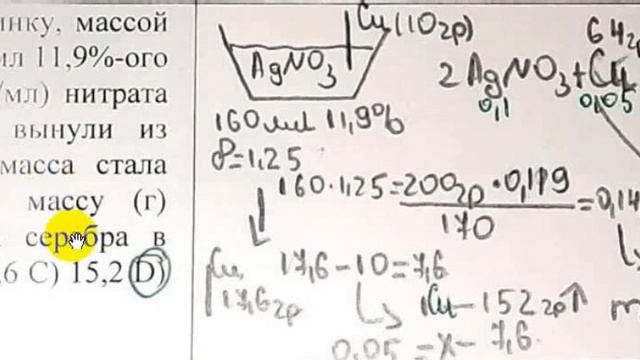 инку, массой
мл 11,9%-ого
/мл) нитрата
вынули из
масса стала
массу (г)
серебра в
,6 C) 15,2 D)
Cu (10гр)
AgNO3
160 мл 11,9%
ρ=1,25
64гр
2AgNO3+Cu
0,1 0,05
160·1,25=200гр·0,119
170
=0,14
Cu 17,6-10=7,6
17,6гр
1Cu-152гр↑
0,05=x-7,6
m